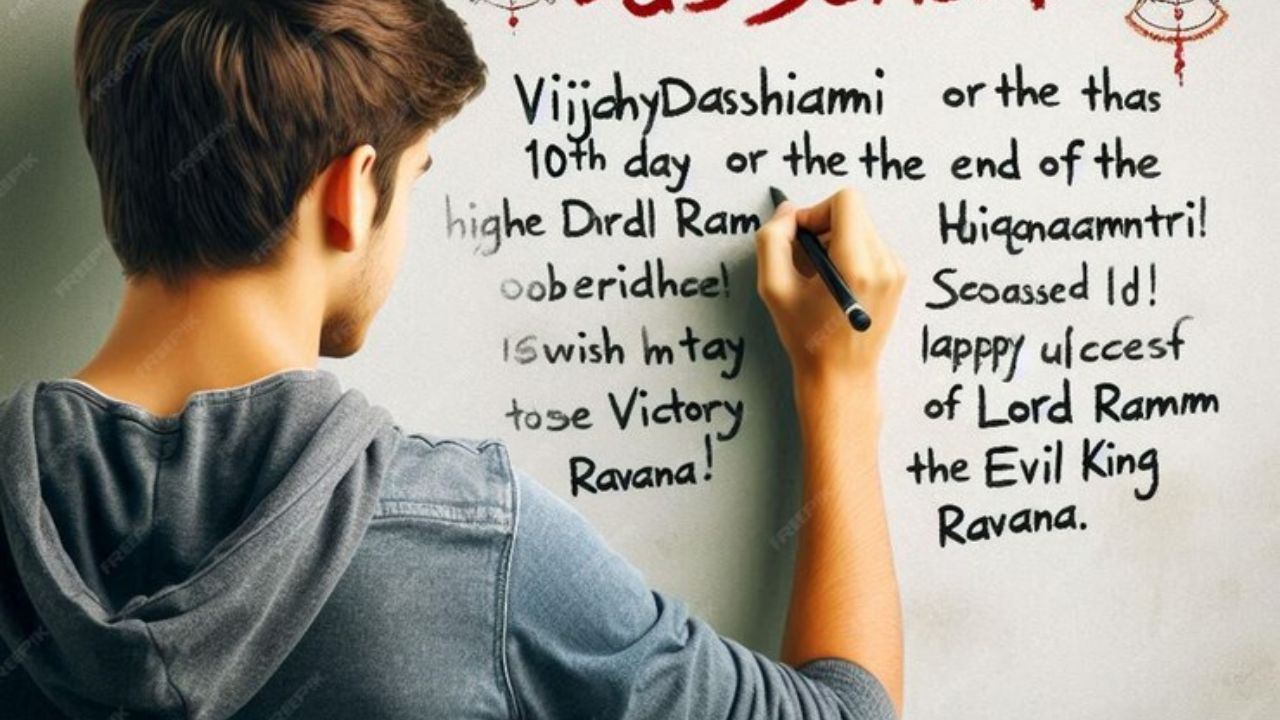 VijjahyDasshiammi or the thas
10th day or the the end of the
highe Dırdl Ram Huiqanaamntri!
ooberidhce! Scoassed Id!
ISwish mtay lapppy ulccesf
tose Victory of Lord Ramm
Ravana! the Evil King
Ravana.